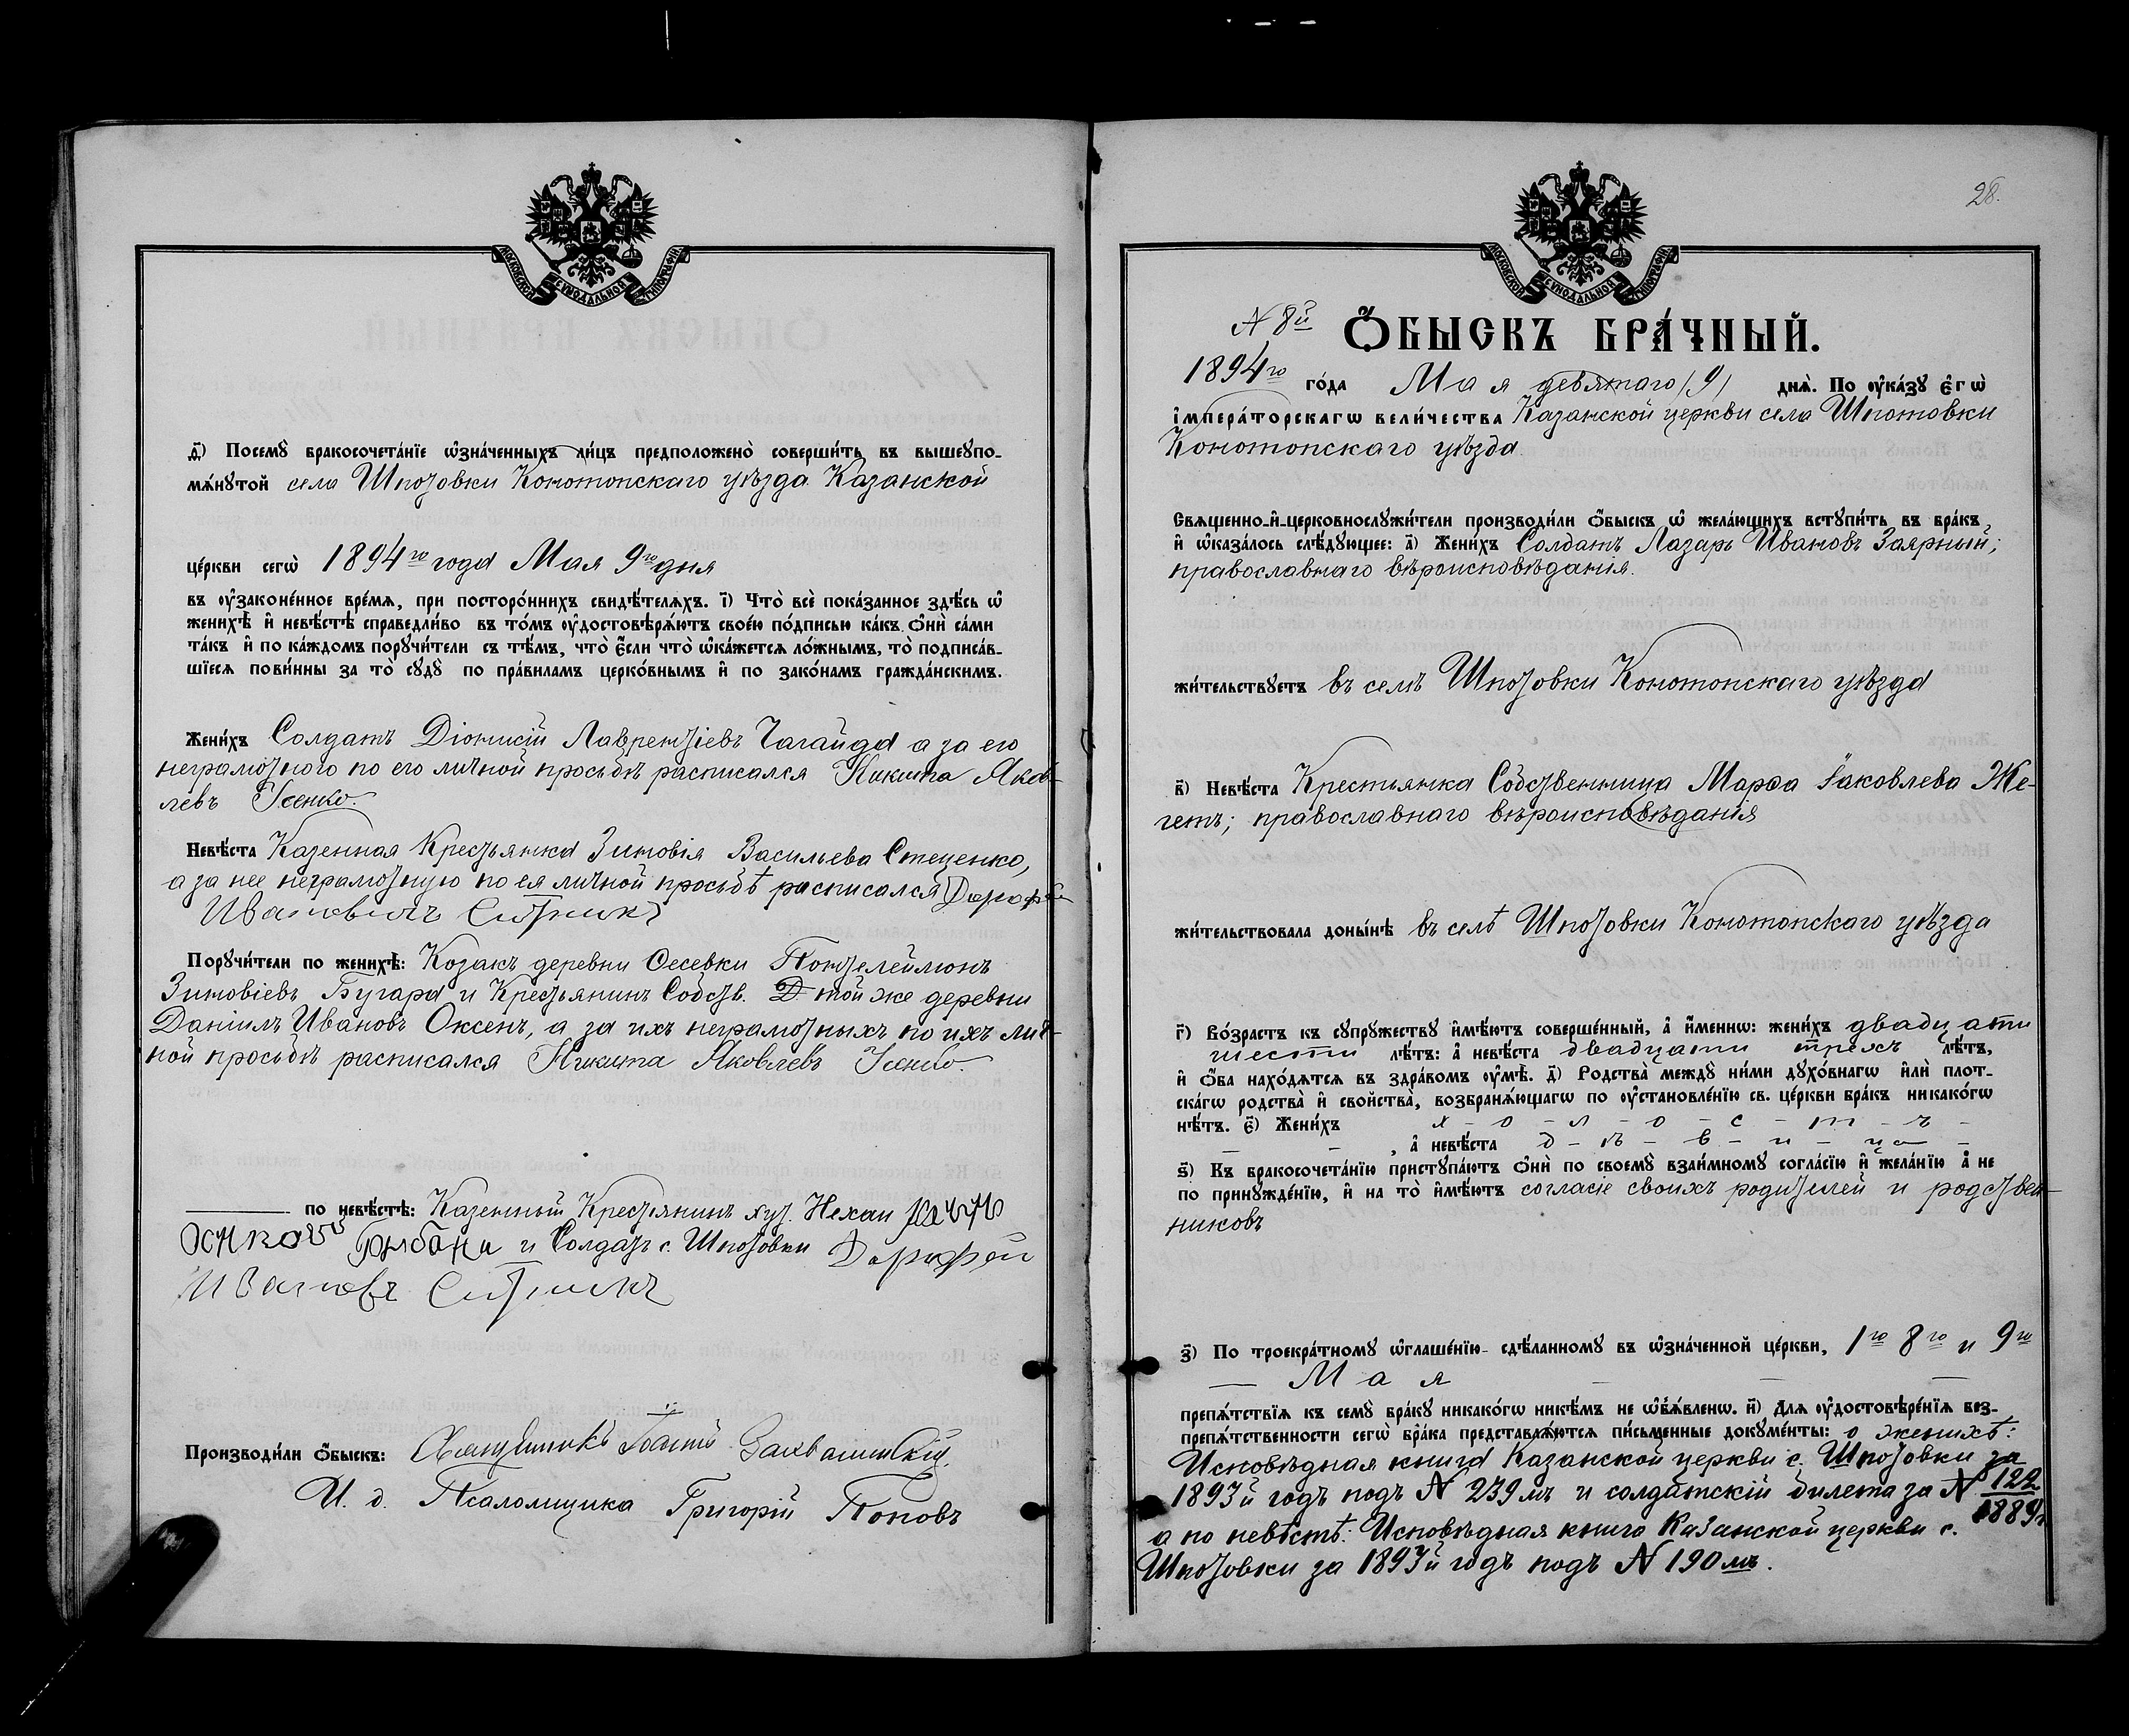 МОСКОВСКОЙ СѴНОДАЛЬНОЙ ТИПОГРАФІИ
д҃) Посемꙋ бракосочета́нїе ѡ҆зна́ченныхъ ли́цъ предположено̀ соверши́ть въ вышеꙋпо-
мѧ́нꙋтой села Шпотовки Конотопскаго уѣзда Казанской
це́ркви сегѡ̀ 1894го года Мая 9го дня
въ ᲂу҆законе́нное вре́мѧ, при посторо́ннихъ свидѣ́телѧхъ. і҃) Что̀ всѐ пока́занное здѣ́сь ѡ҆
женихѣ̀ и҆ невѣ́стѣ справедли́во въ то́мъ ᲂу҆достовѣрѧ́ютъ свое́ю по́дписью ка́къ ѻ҆нѝ са́ми
та́къ и҆ по ка́ждомъ порꙋчи́тели съ тѣ́мъ, что̀ є҆́сли что̀ ѡ҆ка́жется ло́жнымъ, то̀ подписа́в-
шїеся пови́нны за то̀ сꙋдꙋ̀ по пра́виламъ церко́внымъ и҆ по зако́намъ гражда́нскимъ.
Жени́хъ Солдатъ Діонисій Лаврентіевъ Чагайда а за его
неграмотного по его личной просьбѣ расписался Никита Яков-
левъ Усенко.
Невѣ́ста Казенная Крестьянка Зиновія Васильева Стеценко,
а за нее неграмотную по ея личной просьбѣ расписался Дорофей
Ивановичъ Ситникъ
Порꙋчи́тели по женихѣ̀: Козакъ деревни Сесевки Понтелеймонъ
Зиновіевъ Бугара и Крестьянинъ Собств. той же деревни
Даніилъ Ивановъ Оксенъ, а за ихъ неграмотныхъ по ихъ лич-
ной просьбѣ расписался Никита Яковлевъ Усенко.
по невѣ́стѣ: Казенный Крестьянинъ хут. Нехаи
и Солдатъ с. Шпотовки Дорофей
Ивановъ Ситникъ
Производи́ли ѻ҆́быскъ: Священникъ Іоаннъ
И. д. Псаломщика Григорій Поповъ
28.
МОСКОВСКОЙ СѴНОДАЛЬНОЙ ТИПОГРАФІИ
N 8й Ѻ҆́БЫСКЪ БРА́ЧНЫЙ.
1894го го́да Мая девятаго /9/ днѧ̀. По ᲂу҆ка́зꙋ є҆гѡ̀
і҆мпера́торскагѡ вели́чества Казанской церкви села Шпотовки
Конотопскаго уѣзда.
Свѧщенно-и҆-церковнослꙋжи́тели производи́ли ѻ҆́быскъ ѡ҆ жела́ющихъ встꙋпи́ть въ бра́къ,
и҆ ѡ҆каза́лось слѣ́дꙋющее: а҃) Жени́хъ Солдатъ Лазарь Ивановъ Заярный;
православнаго вѣроисповѣданія.
жи́тельствꙋетъ въ селѣ Шпотовки Конотопскаго уѣзда
в҃) Невѣ́ста Крестьянка Собственница Марѳа Іаковлева Же-
гетъ; православнаго вѣроисповѣданія
жи́тельствовала доны́нѣ въ селѣ Шпотовки Конотопскаго уѣзда
г҃) Во́зрастъ къ сꙋпрꙋжествꙋ и҆мѣ́ютъ соверше́нный, а҆ и҆́менно: жени́хъ двадцати
шести лѣ́тъ: а҆ невѣ́ста двадцати трехъ лѣ́тъ,
и҆ ѻ҆́ба нахо́дѧтся въ здра́вомъ ᲂу҆мѣ̀. д҃) Родства̀ междꙋ̀ ни́ми дꙋхо́внагѡ и҆лѝ плот-
ска́гѡ родства̀ и҆ свойства̀, возбранѧ́ющагѡ по ᲂу҆становле́нїю св. це́ркви бра́къ никако́гѡ
нѣ́тъ. є҃) Жени́хъ х - о - л - о - с - т - ъ -
, а҆ невѣ́ста д - ѣ - в - и - ца -
ѕ҃) Къ бракосочета́нїю пристꙋпа́ютъ ѻ҆нѝ по своемꙋ̀ взаи́мномꙋ согла́сїю и҆ жела́нїю а҆ не
по принꙋжде́нїю, и҆ на то̀ и҆мѣ́ютъ согласіе своихъ родителей и родствен-
никовъ
з҃) По троекра́тномꙋ ѡ҆глаше́нїю сдѣ́ланномꙋ въ ѡ҆зна́ченной це́ркви, 1го 8го и 9го
— М а я — — —
препѧ́тствїѧ къ семꙋ̀ бра́кꙋ никако́гѡ никѣ́мъ не ѡ҆б̾ѧ́влено. и҃) Для ᲂу҆достовѣре́нїѧ без-
препѧ́тственности сегѡ̀ бра́ка представлѧ́ются пи́сьменные докꙋме́нты: о женихѣ:
Исповѣдная книга Казанской церкви с. Шпотовки за
1893й годъ подъ N 239мъ и солдатскій билета за N 122
1889г.
а по невѣстѣ: Исповѣдная книга Казанской церкви с.
Шпотовки за 1893й годъ подъ N 190мъ.